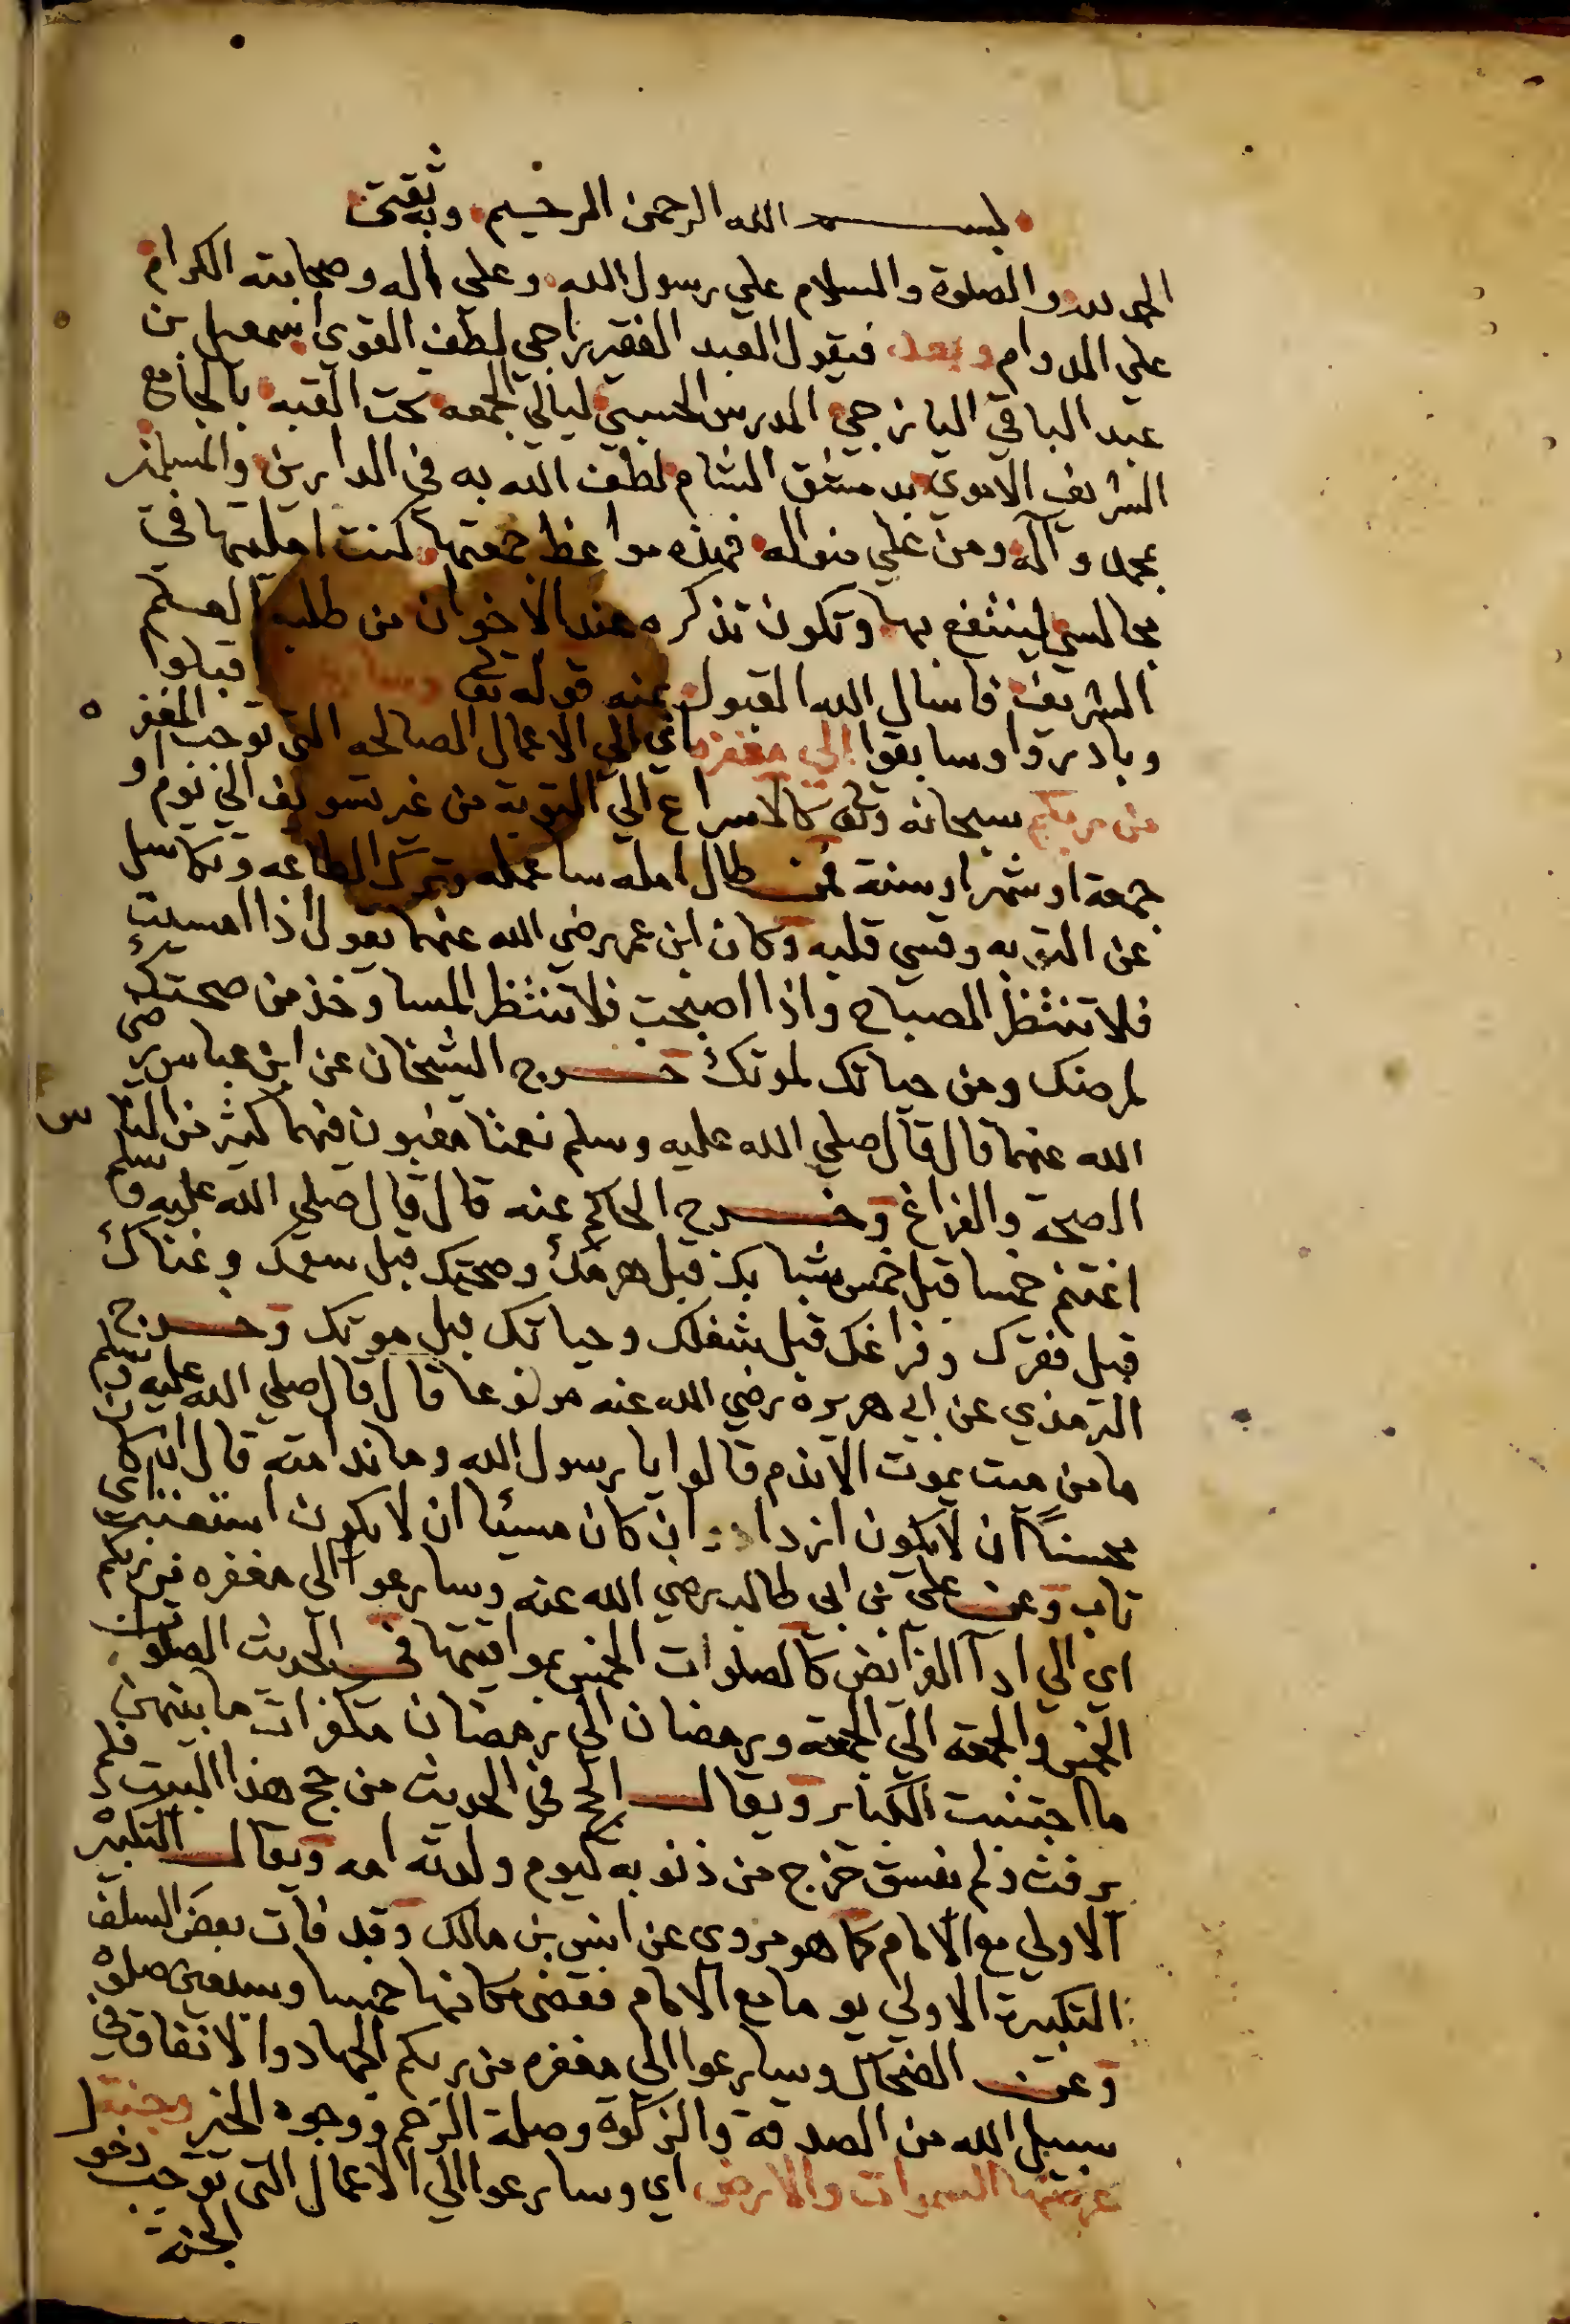 بسم الله الرحمن الرحيم وبه ثقتى
الحمد لله والصلوة والسلام علي رسول الله وعلى اله وصحابته الكرام
علي الدوام وبعد فيقول العبد الفقير راجي لطف القوي اسمعيل بن
عبد الباقي اليازجي المدرس الحسبي ليالي الجمعه تحت القبه بالجامع
الشريف الاموي بدمشق الشام لطف الله به في الدارين والمسلمين
بمحمد وآله ومن علي منواله فهذه مواعظ جمعتها كنت امليتها في
مجالسي لينتفع بها وتكون تذكره عند الاخوان من طلبه العلم
الشريف فاسال الله القبول منه قوله تعا وسارعوا قبلوا
وبادروا وسابقوا الي مغفره اي الي الاعمال الصالحه التي توجب المغفره
من ربكم سبحانه وتعا كالاسراع الي التوبة من غير تسويف الي يوم او
جمعة او شهر او سنة فمن طال امله ساء عمله وترك الطاعه وتكاسل
عن التوبه وقسي قلبه وكان ابن عمر رضي الله عنهما يقول اذا امسيت
فلا تنتظر الصباح واذا اصبحت فلا تنتظر المسا وخذ من صحتك
لمرضك ومن حياتك لموتك خرج الشيخان عن ابن عباس رضي
الله عنهما قال قال صلي الله عليه وسلم نعمتا مغبون فيهما كثير من الناس
الصحة والفراغ وخرج الحاكم عنه قال قال صلي الله عليه وسلم
اغتنم خمسا قبل خمس شبابك قبل هرمك وصحتك قبل سقمك وغناك
قبل فقرك وفراغك قبل شغلك وحياتك قبل موتك وخرج
الترمذي عن ابي هريرة رضي الله عنه مرفوعا قال قال صلي الله عليه وسلم
ما من ميت يموت الا ندم قالوا يا رسول الله وما ندامته قال ان كان
محسناً ان لا يكون ازداد وان كان مسيئا ان لا يكون استعتب اي
تاب وعن علي بن ابي طالب رضي الله عنه وسارعوا الى مغفره من ربكم
اي الي ادآ الفرائض كالصلوات الخمس بمواقيتها في الحديث الصلوات
الخمس والجمعه الي الجمعة ورمضان الي رمضان مكفرات ما بينهن
ما اجتنبت الكبائر ويقال الحج في الحديث من حج هذا البيت فلم
يرفث ولم يفسق خرج من ذنوبه كيوم ولدته امه ويقال التكبيره
الاولي مع الامام كما هو مروى عن انس بن مالك وقد فات بعض السلف
التكبيرة الاولي يوما مع الامام فقضى مكانها خمسا وسبعين صلوة
وعن الضحاك وسارعوا الى مغفره من ربكم الجهاد والانفاق في
سبيل الله من الصدقة والزكوة وصلة الرحم ووجوه الخير وجنة
عرضها السموات والارض اي وسارعوا الي الاعمال التى توجب دخول
الجنة